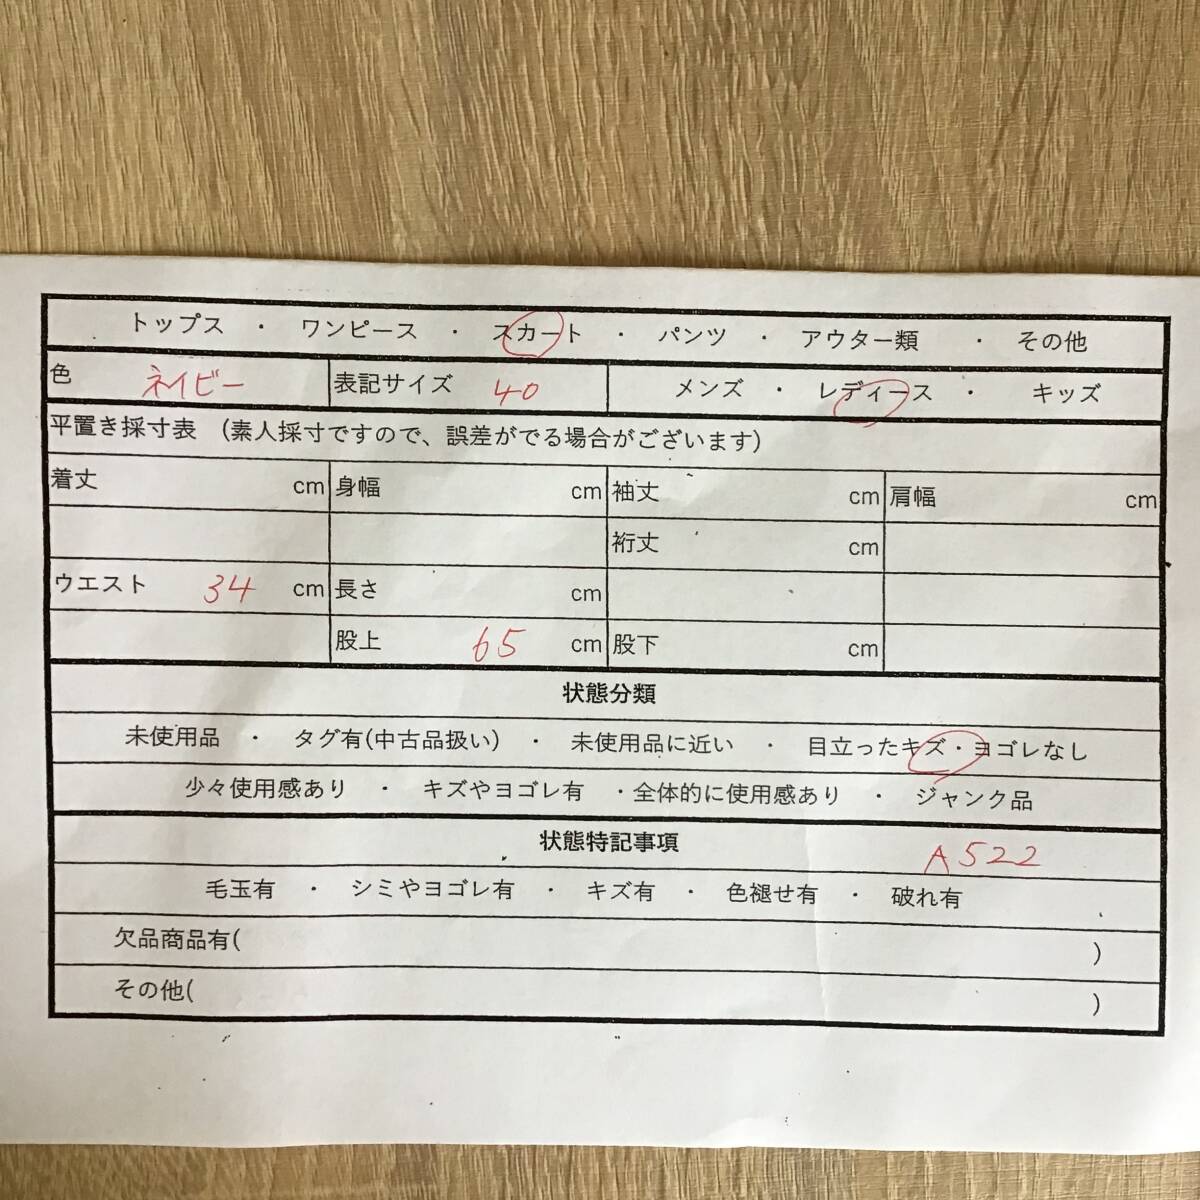 トップス ・ ワンピース ・ スカート ・ パンツ ・ アウター類 ・ その他
色 ネイビー 表記サイズ 40 メンズ ・ レディース ・ キッズ
平置き採寸表 （素人採寸ですので、誤差がでる場合がございます）
着丈 cm 身幅 cm 袖丈 cm 肩幅 cm
裄丈 cm
ウエスト 34 cm 長さ cm
股上 65 cm 股下 cm
状態分類
未使用品 ・ タグ有(中古品扱い) ・ 未使用品に近い ・ 目立ったキズ・ヨゴレなし
少々使用感あり ・ キズやヨゴレ有 ・全体的に使用感あり ・ ジャンク品
状態特記事項 A522
毛玉有 ・ シミやヨゴレ有 ・ キズ有 ・ 色褪せ有 ・ 破れ有
欠品商品有( )
その他( )